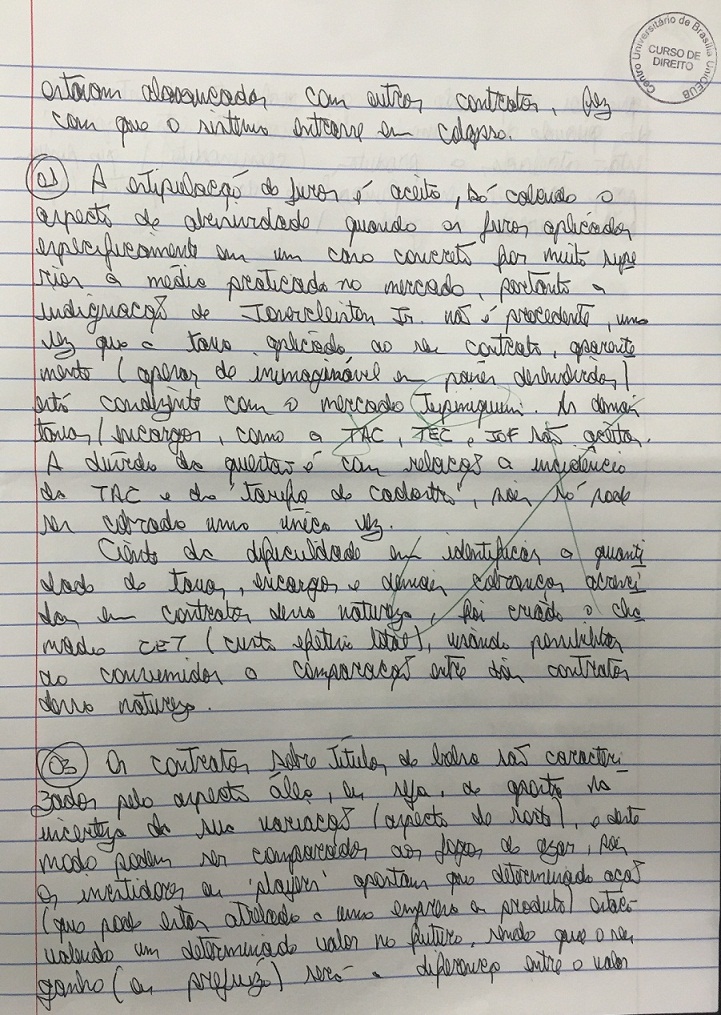 Centro Universitário de Brasília UniCEUB
CURSO DE
DIREITO
estavam alavancados com outros contratos, fez
com que o sistema entrasse em colapso.
01 A estipulação de juros é aceita, só cabendo o
aspecto de abusividade quando os juros aplicados
especificamente em um caso concreto for muito supe
rior a média praticada no mercado, portanto a
indignação de Jr. não é procedente, uma
vez que a taxa aplicada ao seu contrato, aparente
mente (apesar de inimaginável em países desenvolvidos)
está condizente com o mercado Tupiniquim. As demais
taxas/encargos, como a TAC, TEC, IOF são aceitas.
A dúvida da questão é com relação a incidência
da TAC e da "tarifa de cadastro", pois só pode
ser cobrado uma única vez.
Ciente da dificuldade em identificar a quanti
dade de taxas, encargos e demais cobranças
em contratos dessa natureza, foi criado o cha
mado CET (custo efetivo total), visando possibilitar
ao consumidor a comparação entre dois contratos
dessa natureza.
03 Os contratos sobre Títulos de bolsa são caracteri
zados pelo aspecto álea, ou seja, de aposta na
incerteza da sua variação (aspecto de sorte), e deste
modo podem ser comparados aos jogos de azar, pois
os investidores ou 'players' apostam que determinada ação
(que pode estar atrelada a uma empresa ou produto) estará
valendo um determinado valor no futuro, sendo que o seu
ganho (ou prejuízo) será a diferença entre o valor